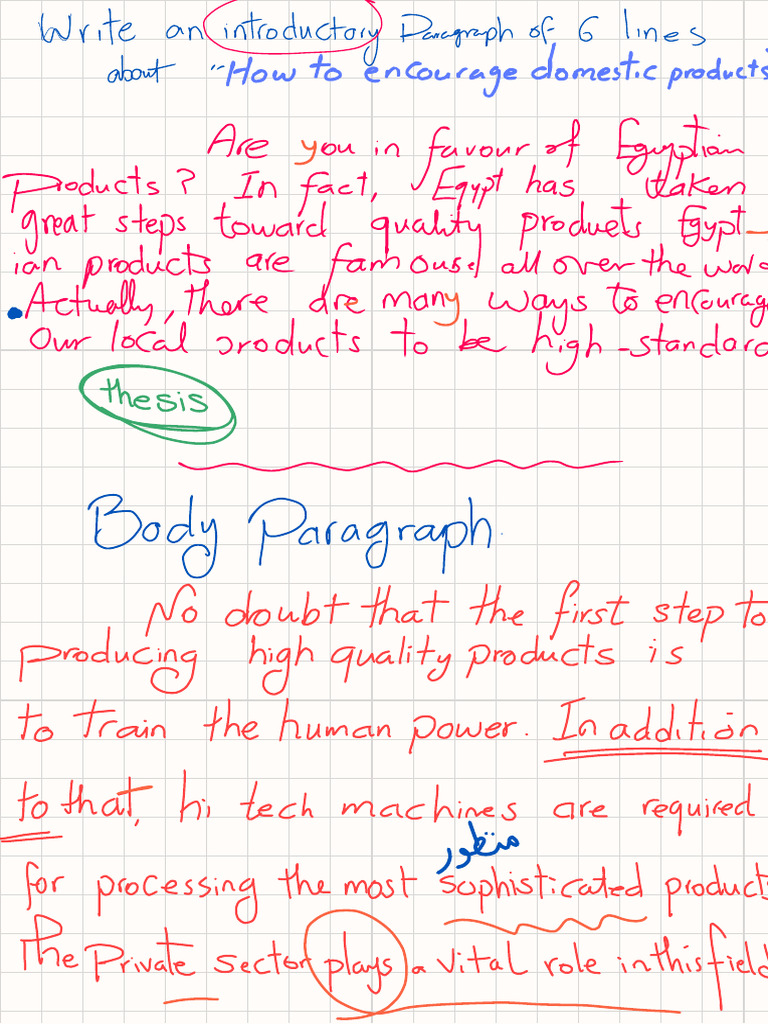 Write an introductory Paragraph of 6 lines
about "How to encourage domestic products
Are you in favour of Egyptian
Products? In fact, Egypt has taken
great steps toward quality products Egypt-
ian products are famouse all over the wor
Actually, there are many ways to encourag
Our local products to be high-standard
thesis
Body Paragraph.
No doubt that the first step to
producing high quality products is
to train the human power. In addition
to that, hi tech machines are required
متطور
for processing the most sophisticated product
The Private sector plays a vital role in this field